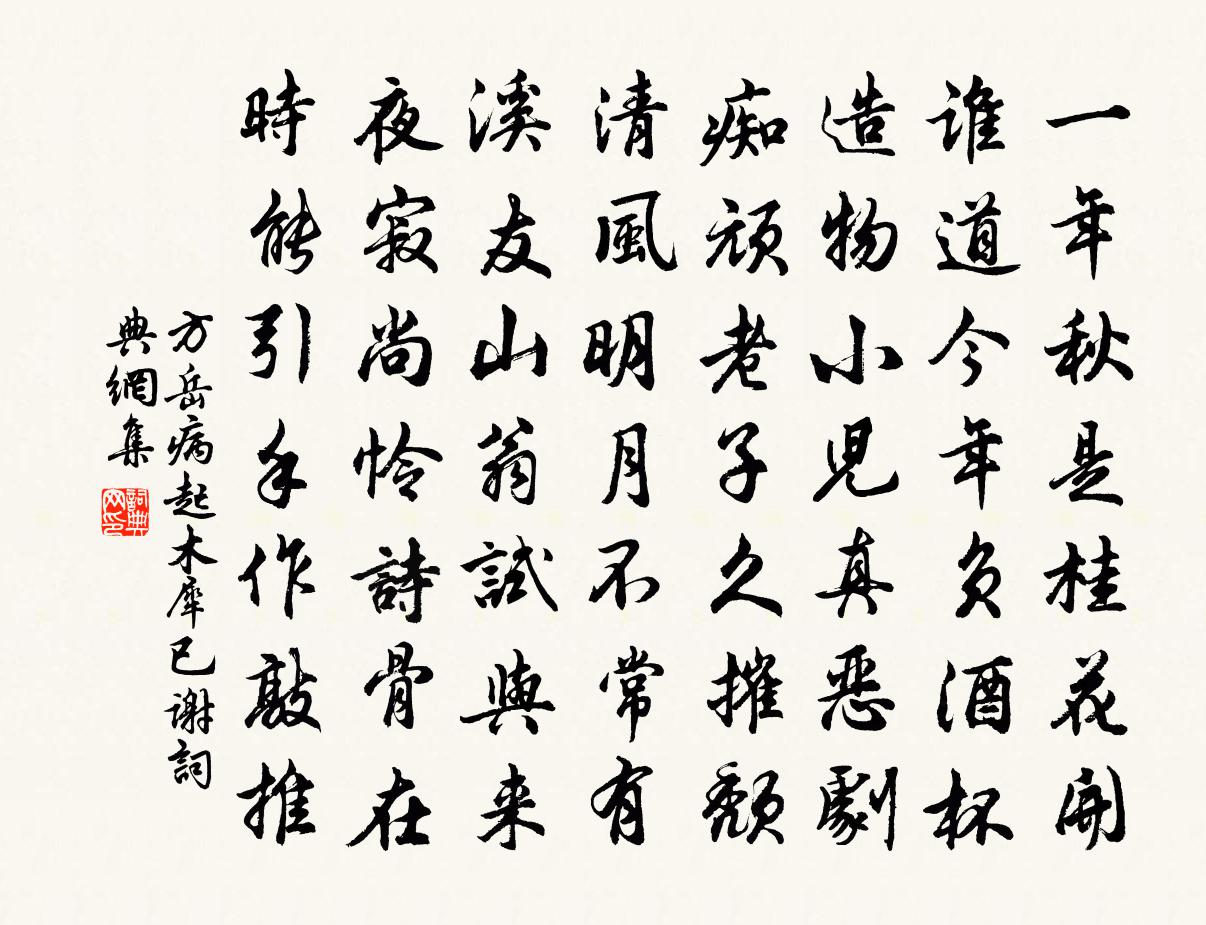 一年秋是桂花開
誰道今年负酒杯
造物小児真惡劇
痴頑老子久摧頹
清風明月不常有
溪友山翁試與来
夜寂尚怜詩骨在
時能引手作敲推
方岳病起木犀已謝詞
典網集
詞典
网印